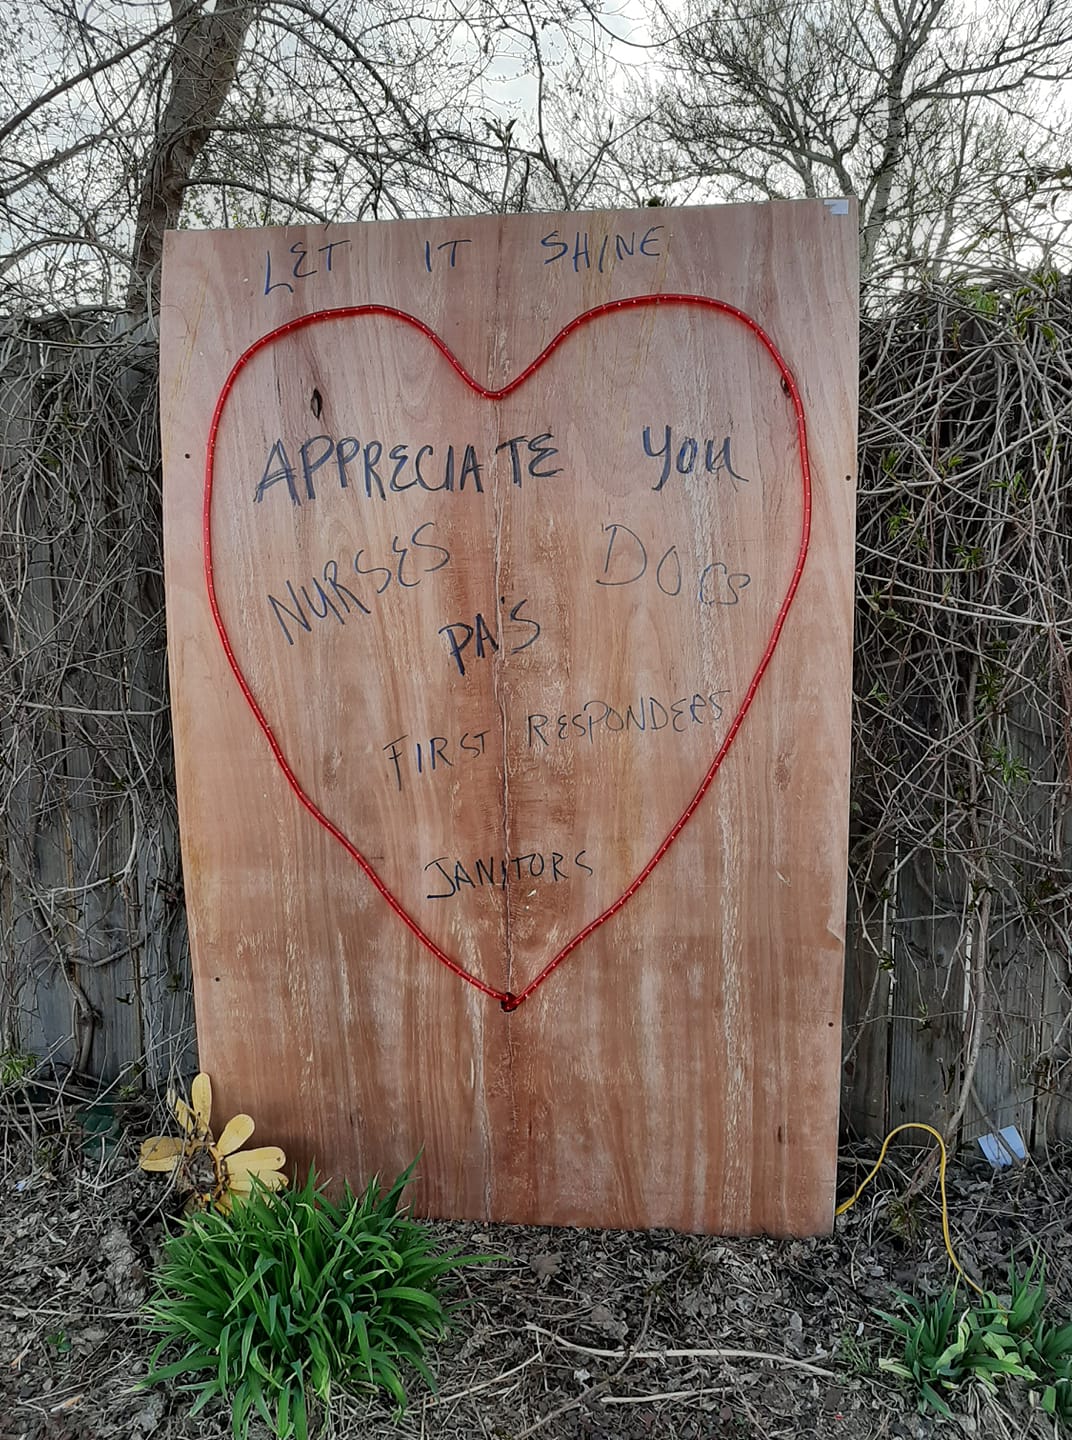 LET IT SHINE
APPRECIATE YOU
NURSES DOCS
PA'S
FIRST RESPONDERS
JANITORS